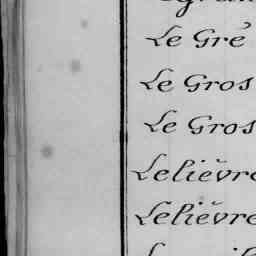 Le Gré
Le Gros
Le Gros
Lelièvre
Lelièvre